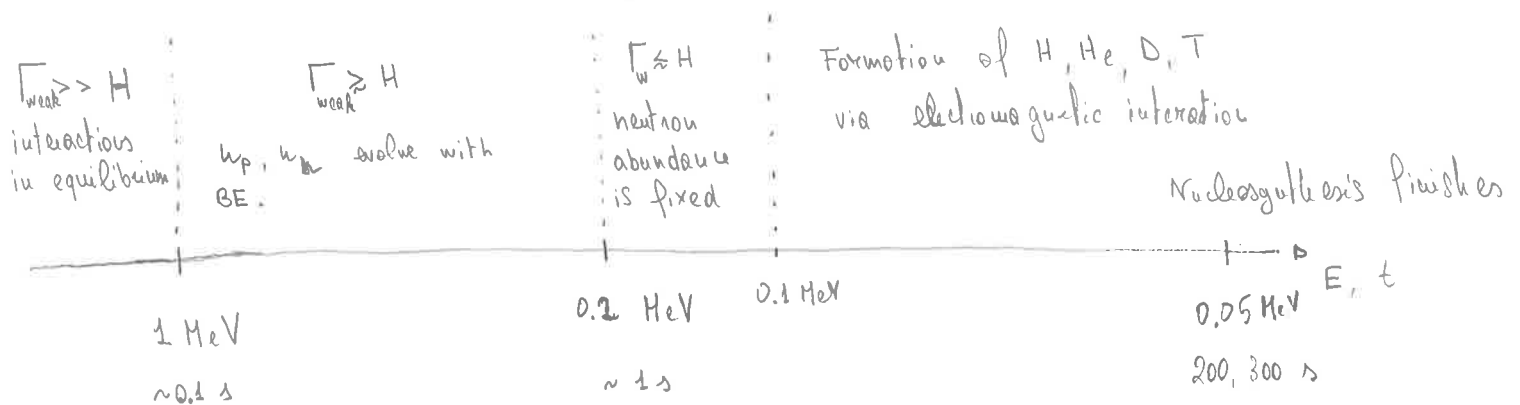 Γweak >> H
interactions
in equilibrium
Γweak ≳ H
np, nn evolve with
BE.
Γw ≲ H
neutron
abundance
is fixed
Formation of H, He, D, T
via electromagnetic interation
Nucleosynthesis finishes
1 MeV
~0.1 s
0.2 MeV
~ 1 s
0.1 MeV
0.05 MeV
200, 300 s
E, t